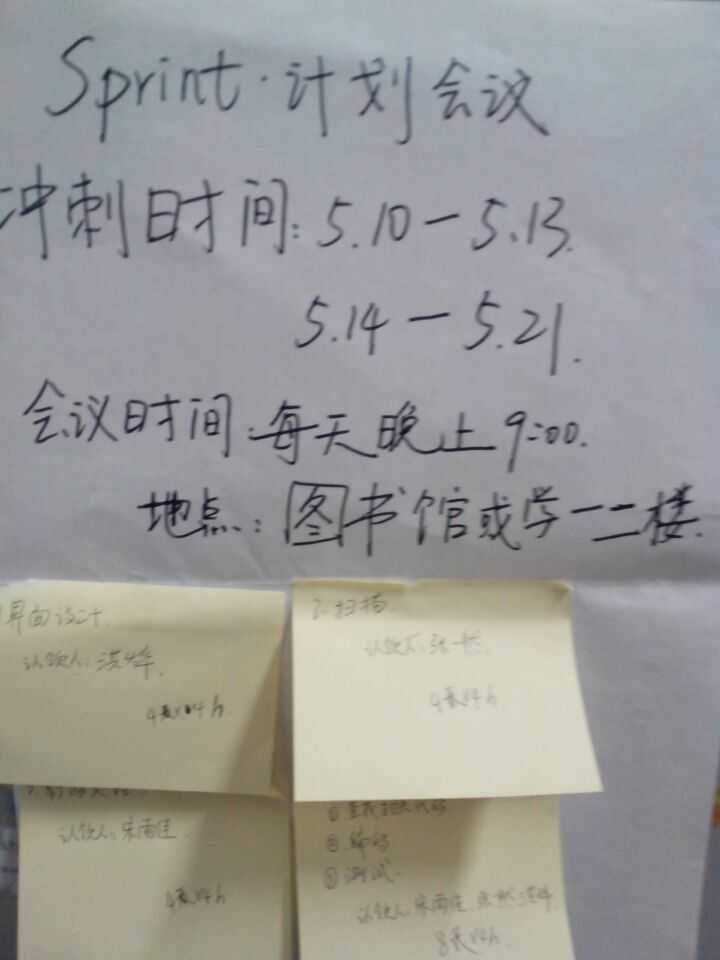 Sprint·计划会议
冲刺时间:5.10-5.13.
5.14-5.21.
会议时间:每天晚上9:00.
地点:图书馆或学一二楼.
界面设计
认领人:洪烨.
4天×4h
2.扫描
认领人:张一然.
4天×4h
认领人:宋雨佳.
4天×4h
②编码
③测试.
认领人:宋雨佳
8天×4h.